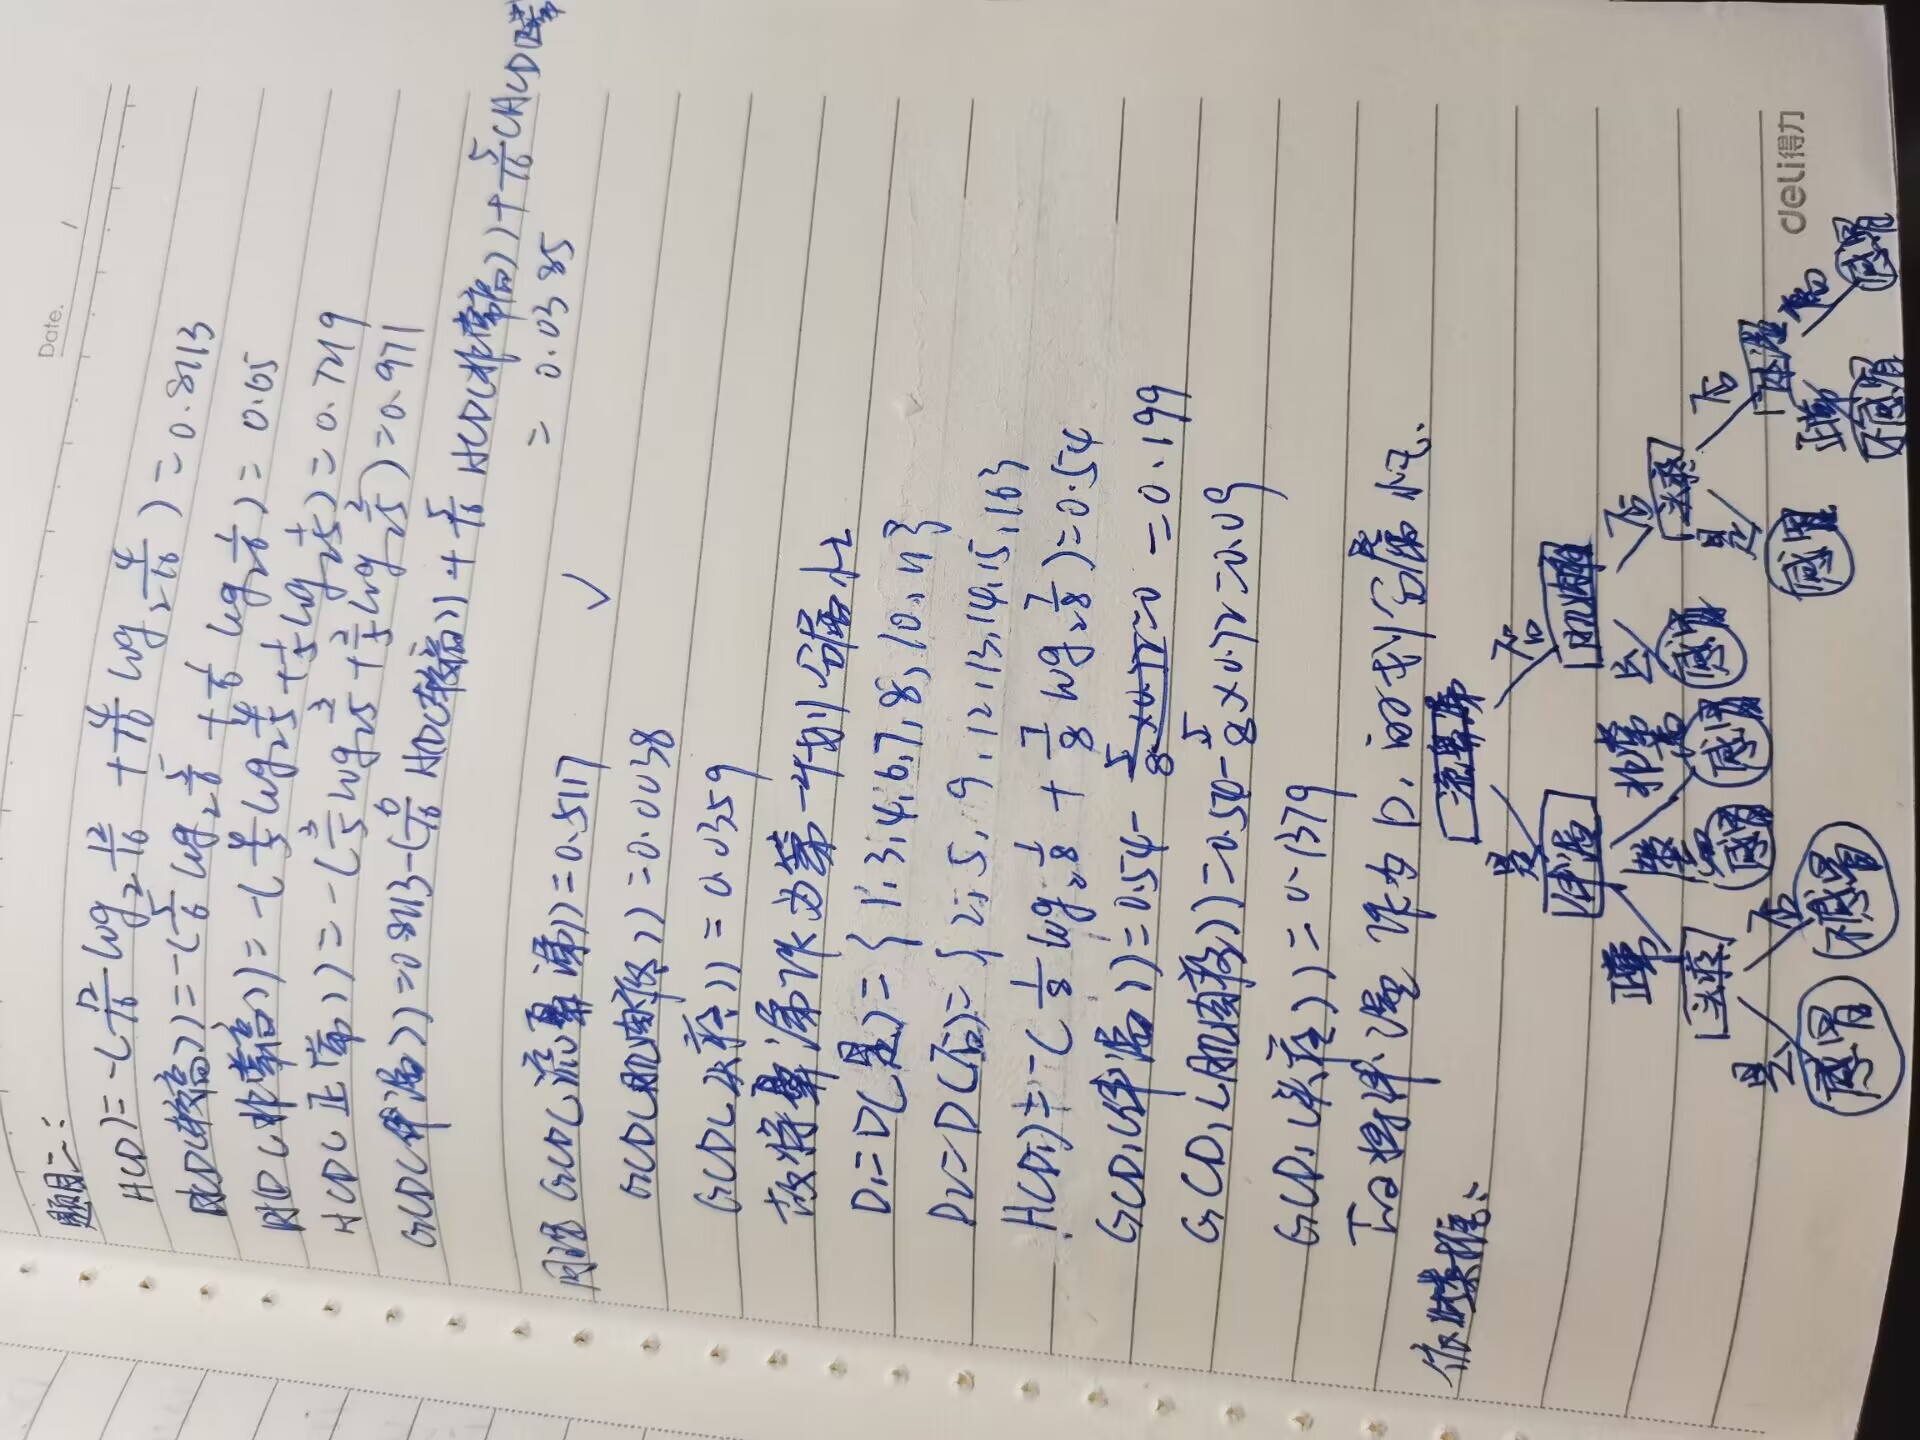 Date.
题目二:
H(D)=-(12/16 log₂ 12/16 + 4/16 log₂ 4/16)=0.8113
H(D(较高))=-(5/6 log₂ 5/6 + 1/6 log₂ 1/6)=0.65
H(D(非常高))=-(4/5 log₂ 4/5 + 1/5 log₂ 1/5)=0.7219
H(D(正常))=-(3/5 log₂ 3/5 + 2/5 log₂ 2/5)=0.971
G(D(体温))=0.8113-(6/16 H(D(较高))+5/16 H(D(非常高))+5/16 (H(D(正常
=0.0385
同理 G(D(流鼻涕))=0.5117
G(D(肌肉疼))=0.0038
G(D(头疼))=0.0359
故将鼻涕作为第一个划分属性
D₁=D(是)={1,3,4,6,7,8,10,11}
D₂=D(否)={2,5,9,12,13,14,15,16}
H(D₁)=-(1/8 log₂ 1/8 + 7/8 log₂ 7/8)=0.54
G(D₁(体温))=0.54-=0.199
G(D₁(肌肉疼))=0.54-5/8×0.72=0.09
G(D₁(头疼))=0.1379
下面将体温作为D₁的划分属性.
依此类推:
流鼻涕
是 否
体温 肌肉疼
正常 较高 非常高 是 否
头疼 感冒 感冒 感冒 头疼
是 否 是 否
感冒 不感冒 感冒 体温
正常 高
不感冒 感冒
deli得力